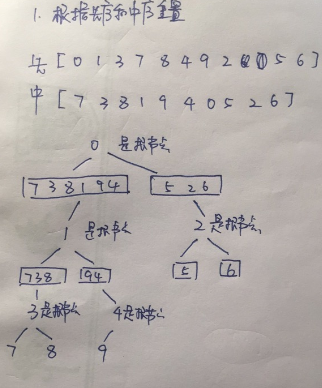 1. 根据先序和中序重置
先 [ 0 1 3 7 8 4 9 2 5 6 ]
中 [ 7 3 8 1 9 4 0 5 2 6 ]
0 是根节点
7 3 8 1 9 4 5 2 6
1 是根节点 2 是根节点
7 3 8 9 4 5 6
3 是根节点 4 是根节点
7 8 9